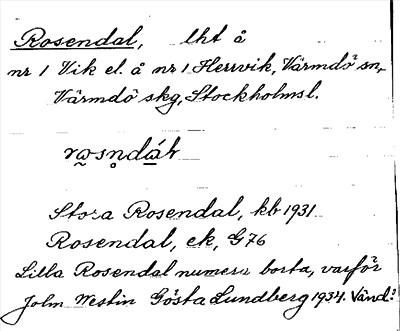 Rosendal, lht å
nr 1 Vik el. å nr 1 Herrvik, Värmdö sn,
Värmdö skg, Stockholmsl.
Stora Rosendal, kb 1931
Rosendal, ek, G76
Lilla Rosendal numera borta, varför
John Westin Gösta Lundberg 1934. Vänd!